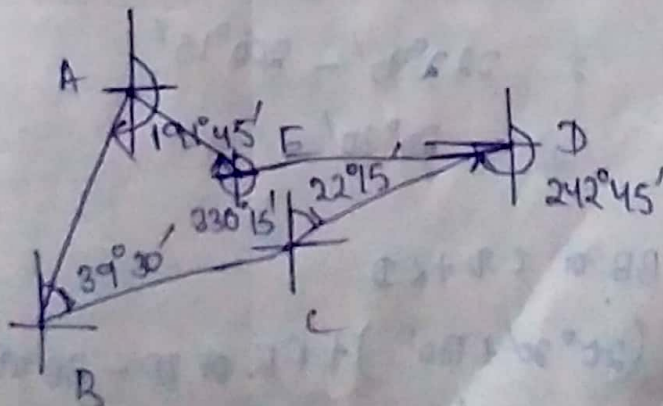 A
191°45'
E
D
22°15'
242°45'
330°15'
39°30'
C
B